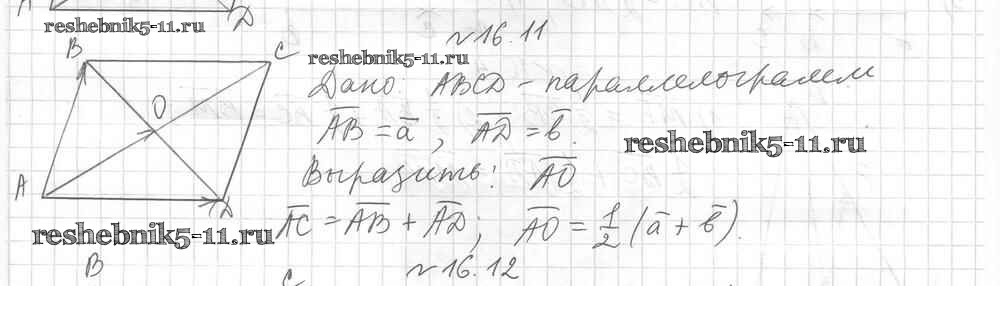 A D
reshebnik5-11.ru
№16.11
B C
reshebnik5-11.ru
Дано: ABCD - параллелограмм
O
AB = a; AD = b.
reshebnik5-11.ru
Выразить: AO
A D
AC = AB + AD; AO = 1/2 (a + b).
reshebnik5-11.ru
№16.12
B C